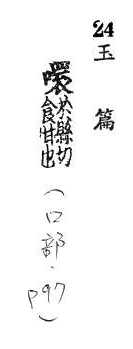 24 玉篇
噮 於縣切食甘也
(口部．p97)